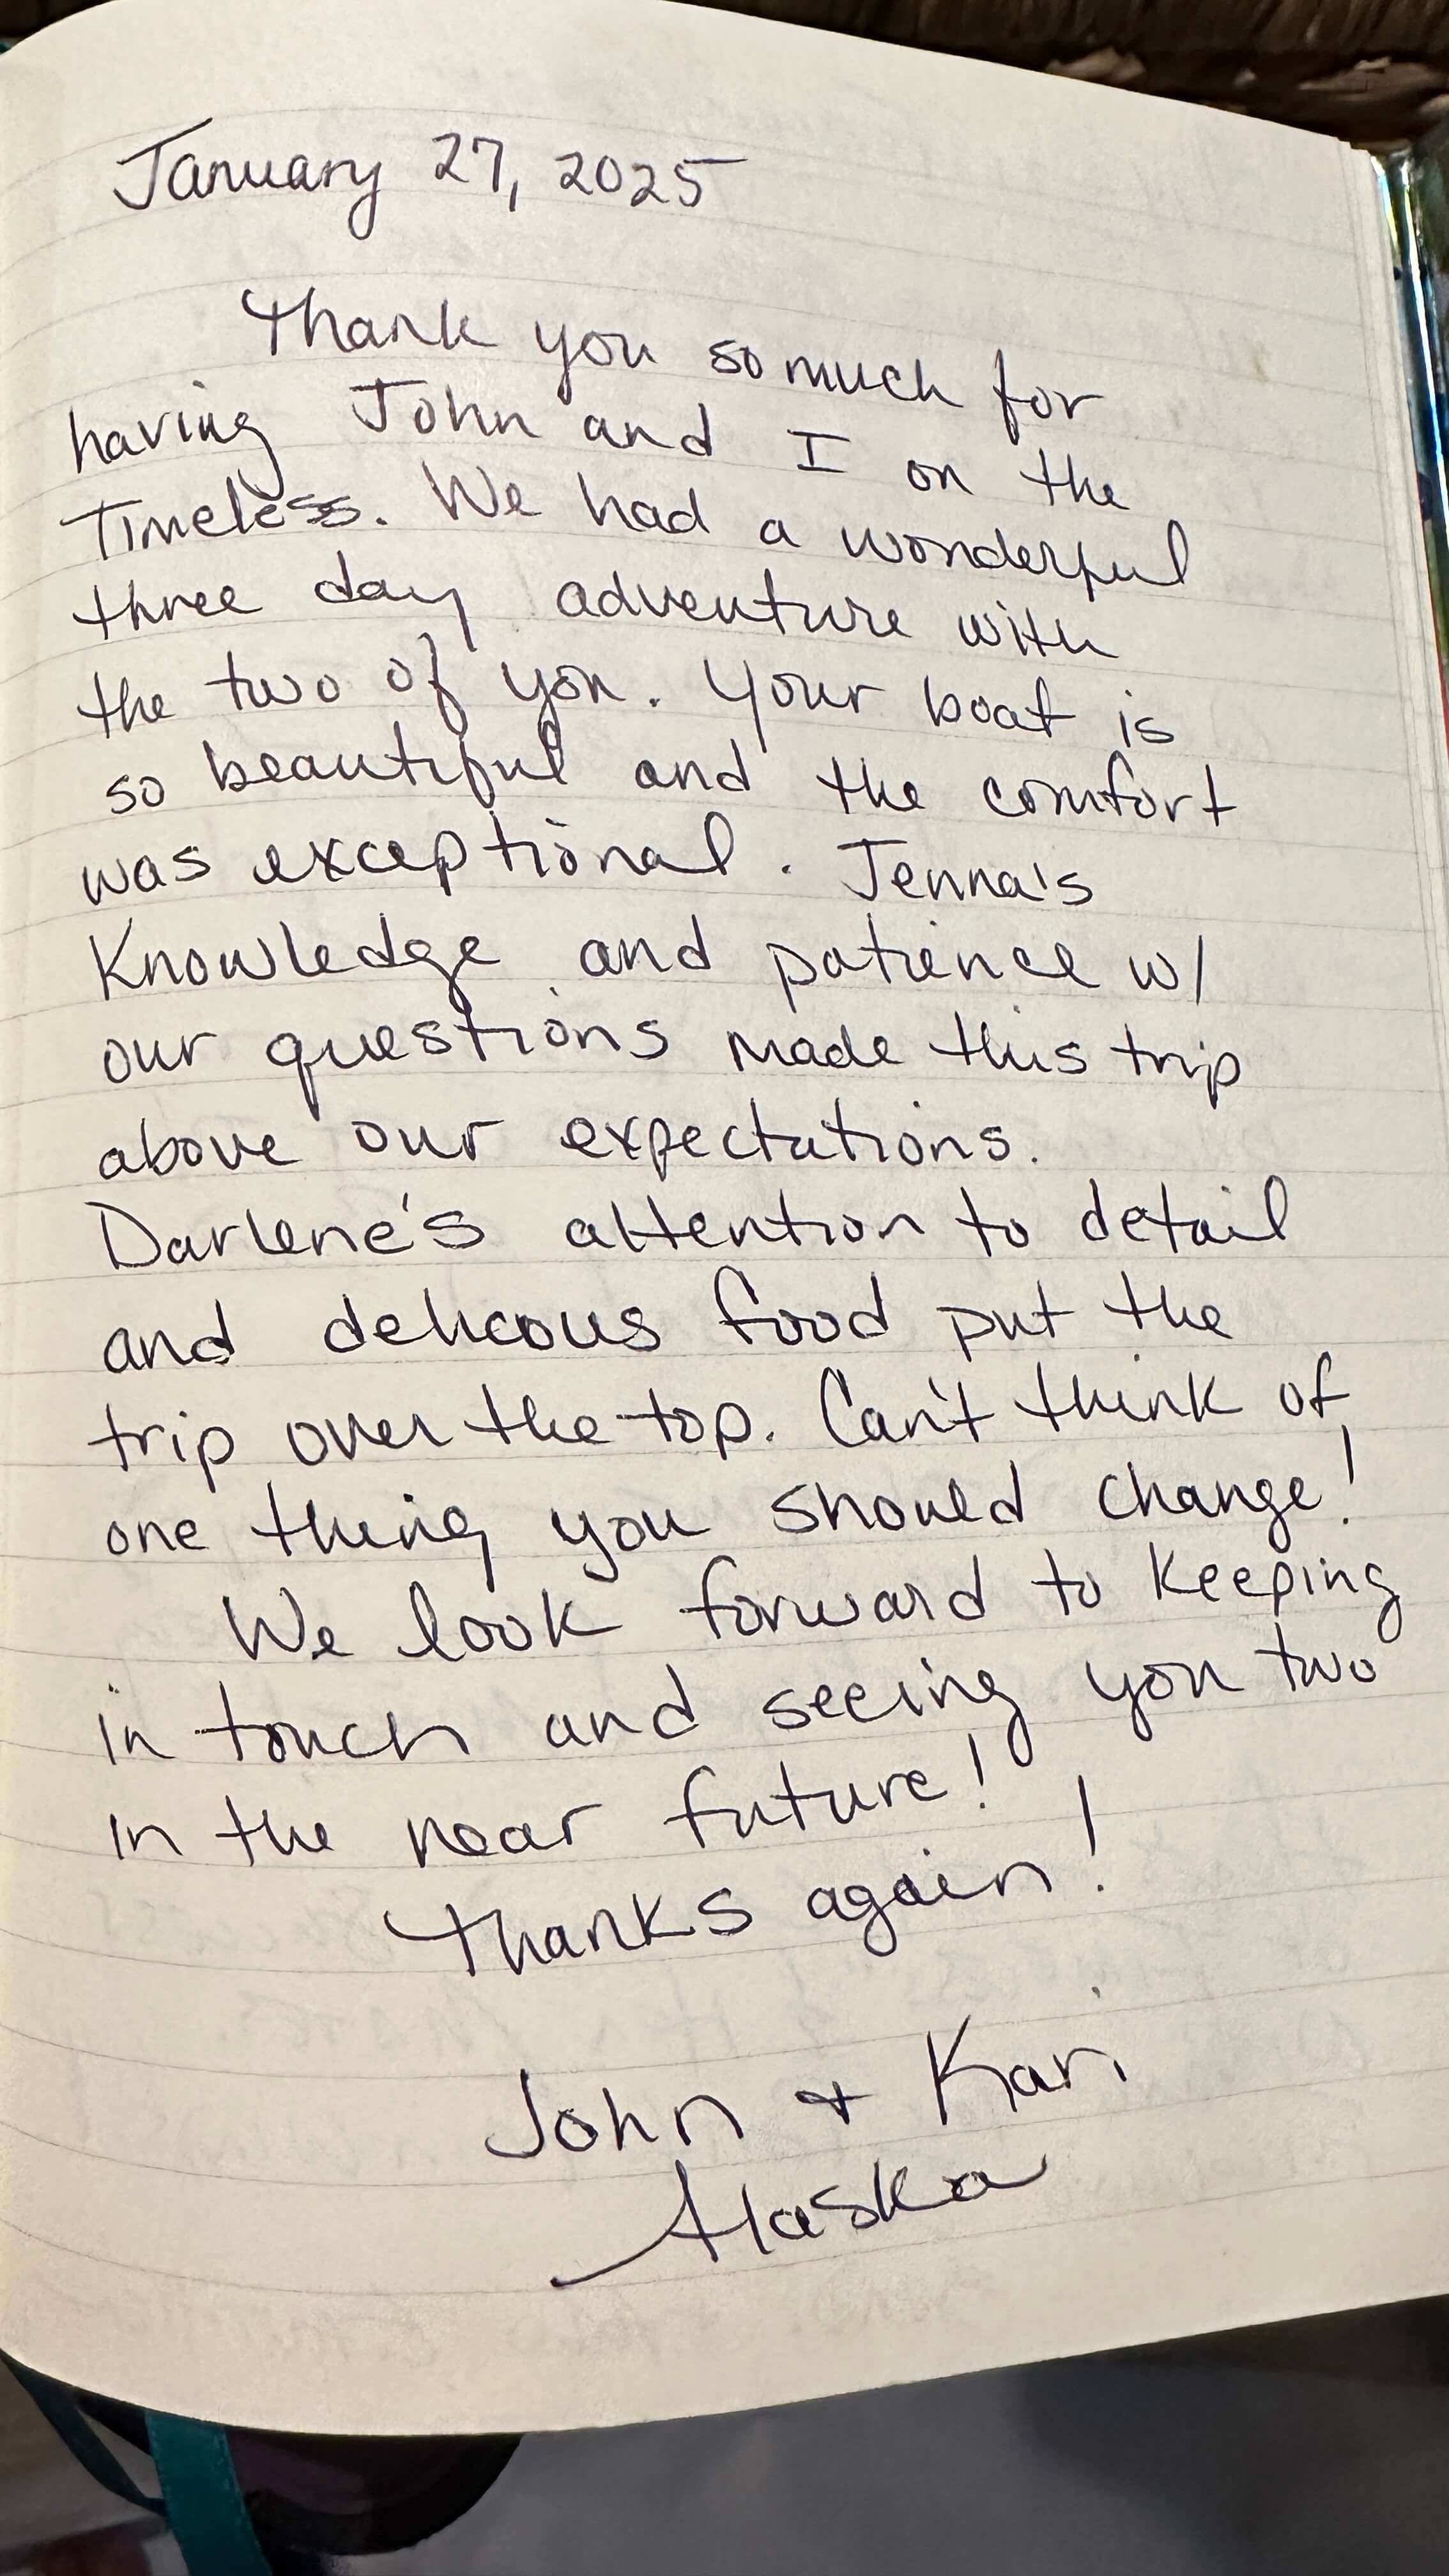 January 27, 2025
Thank you so much for
having John and I on the
Timeless. We had a wonderful
three day adventure with
the two of you. Your boat is
so beautiful and the comfort
was exceptional. Jenna's
Knowledge and patience w/
our questions made this trip
above our expectations.
Darlene's attention to detail
and delicous food put the
trip over the top. Can't think of
one thing you should change!
We look forward to keeping
in touch and seeing you two
in the near future!
Thanks again!
John + Kari
Alaska